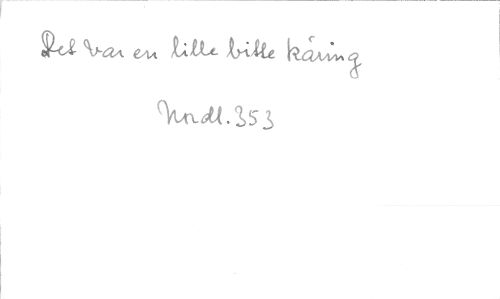 Det var en lille bitte käring
Nordl. 353